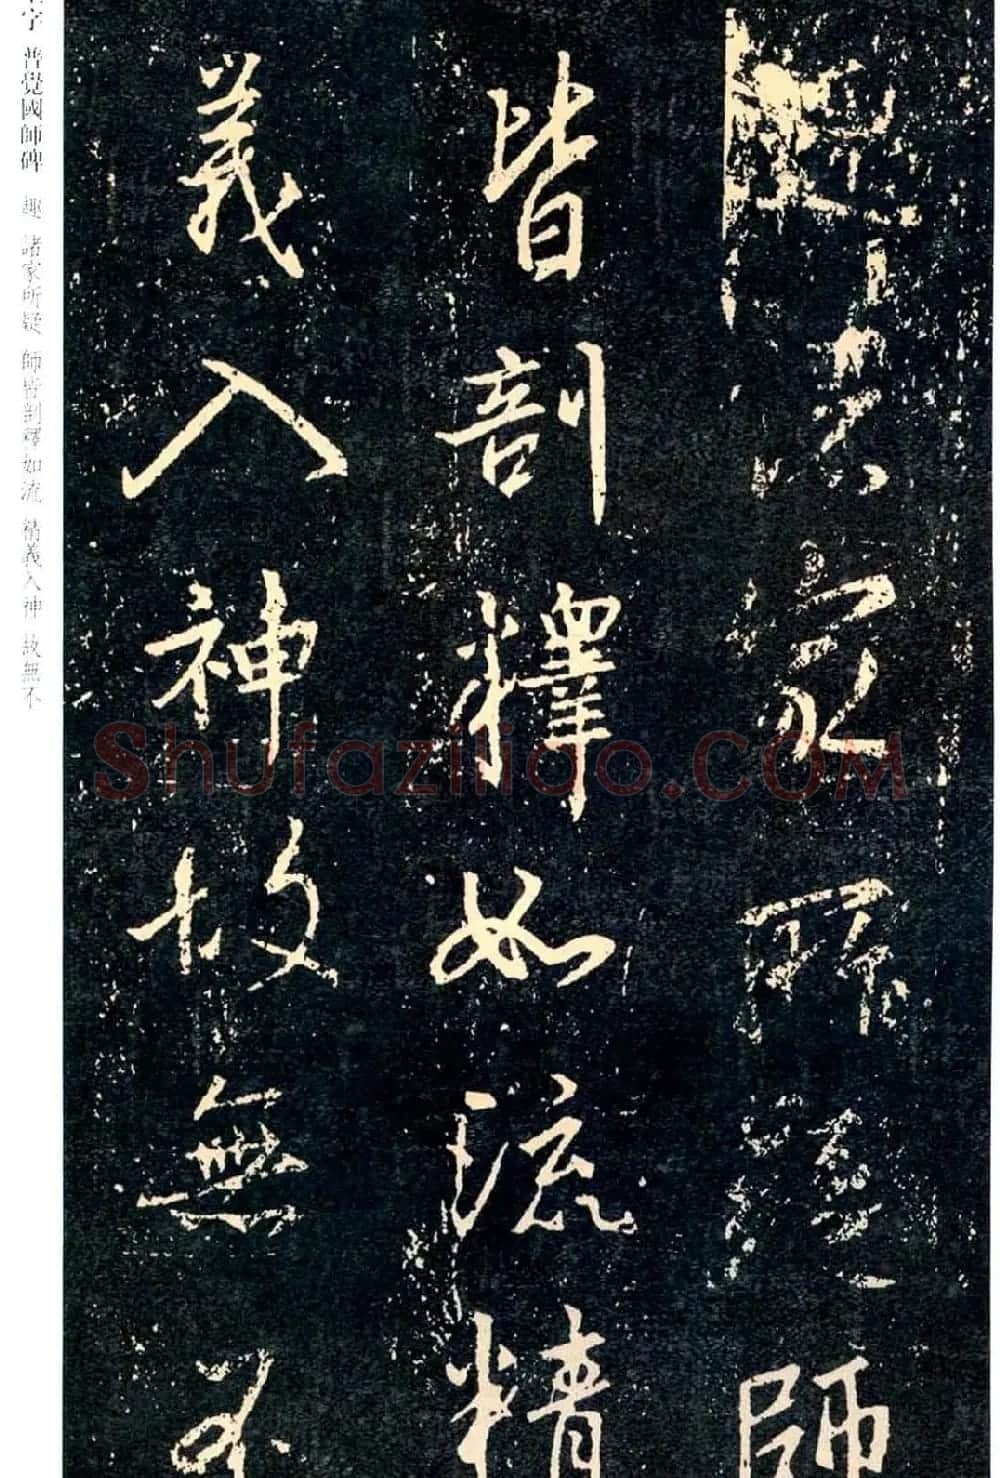 趣諸家所疑師
皆剖釋如流精
義入神故無不
字 普覺國師碑 趣 諸家所疑 師皆剖釋如流 精義入神 故無不
Shufaziliao.COM